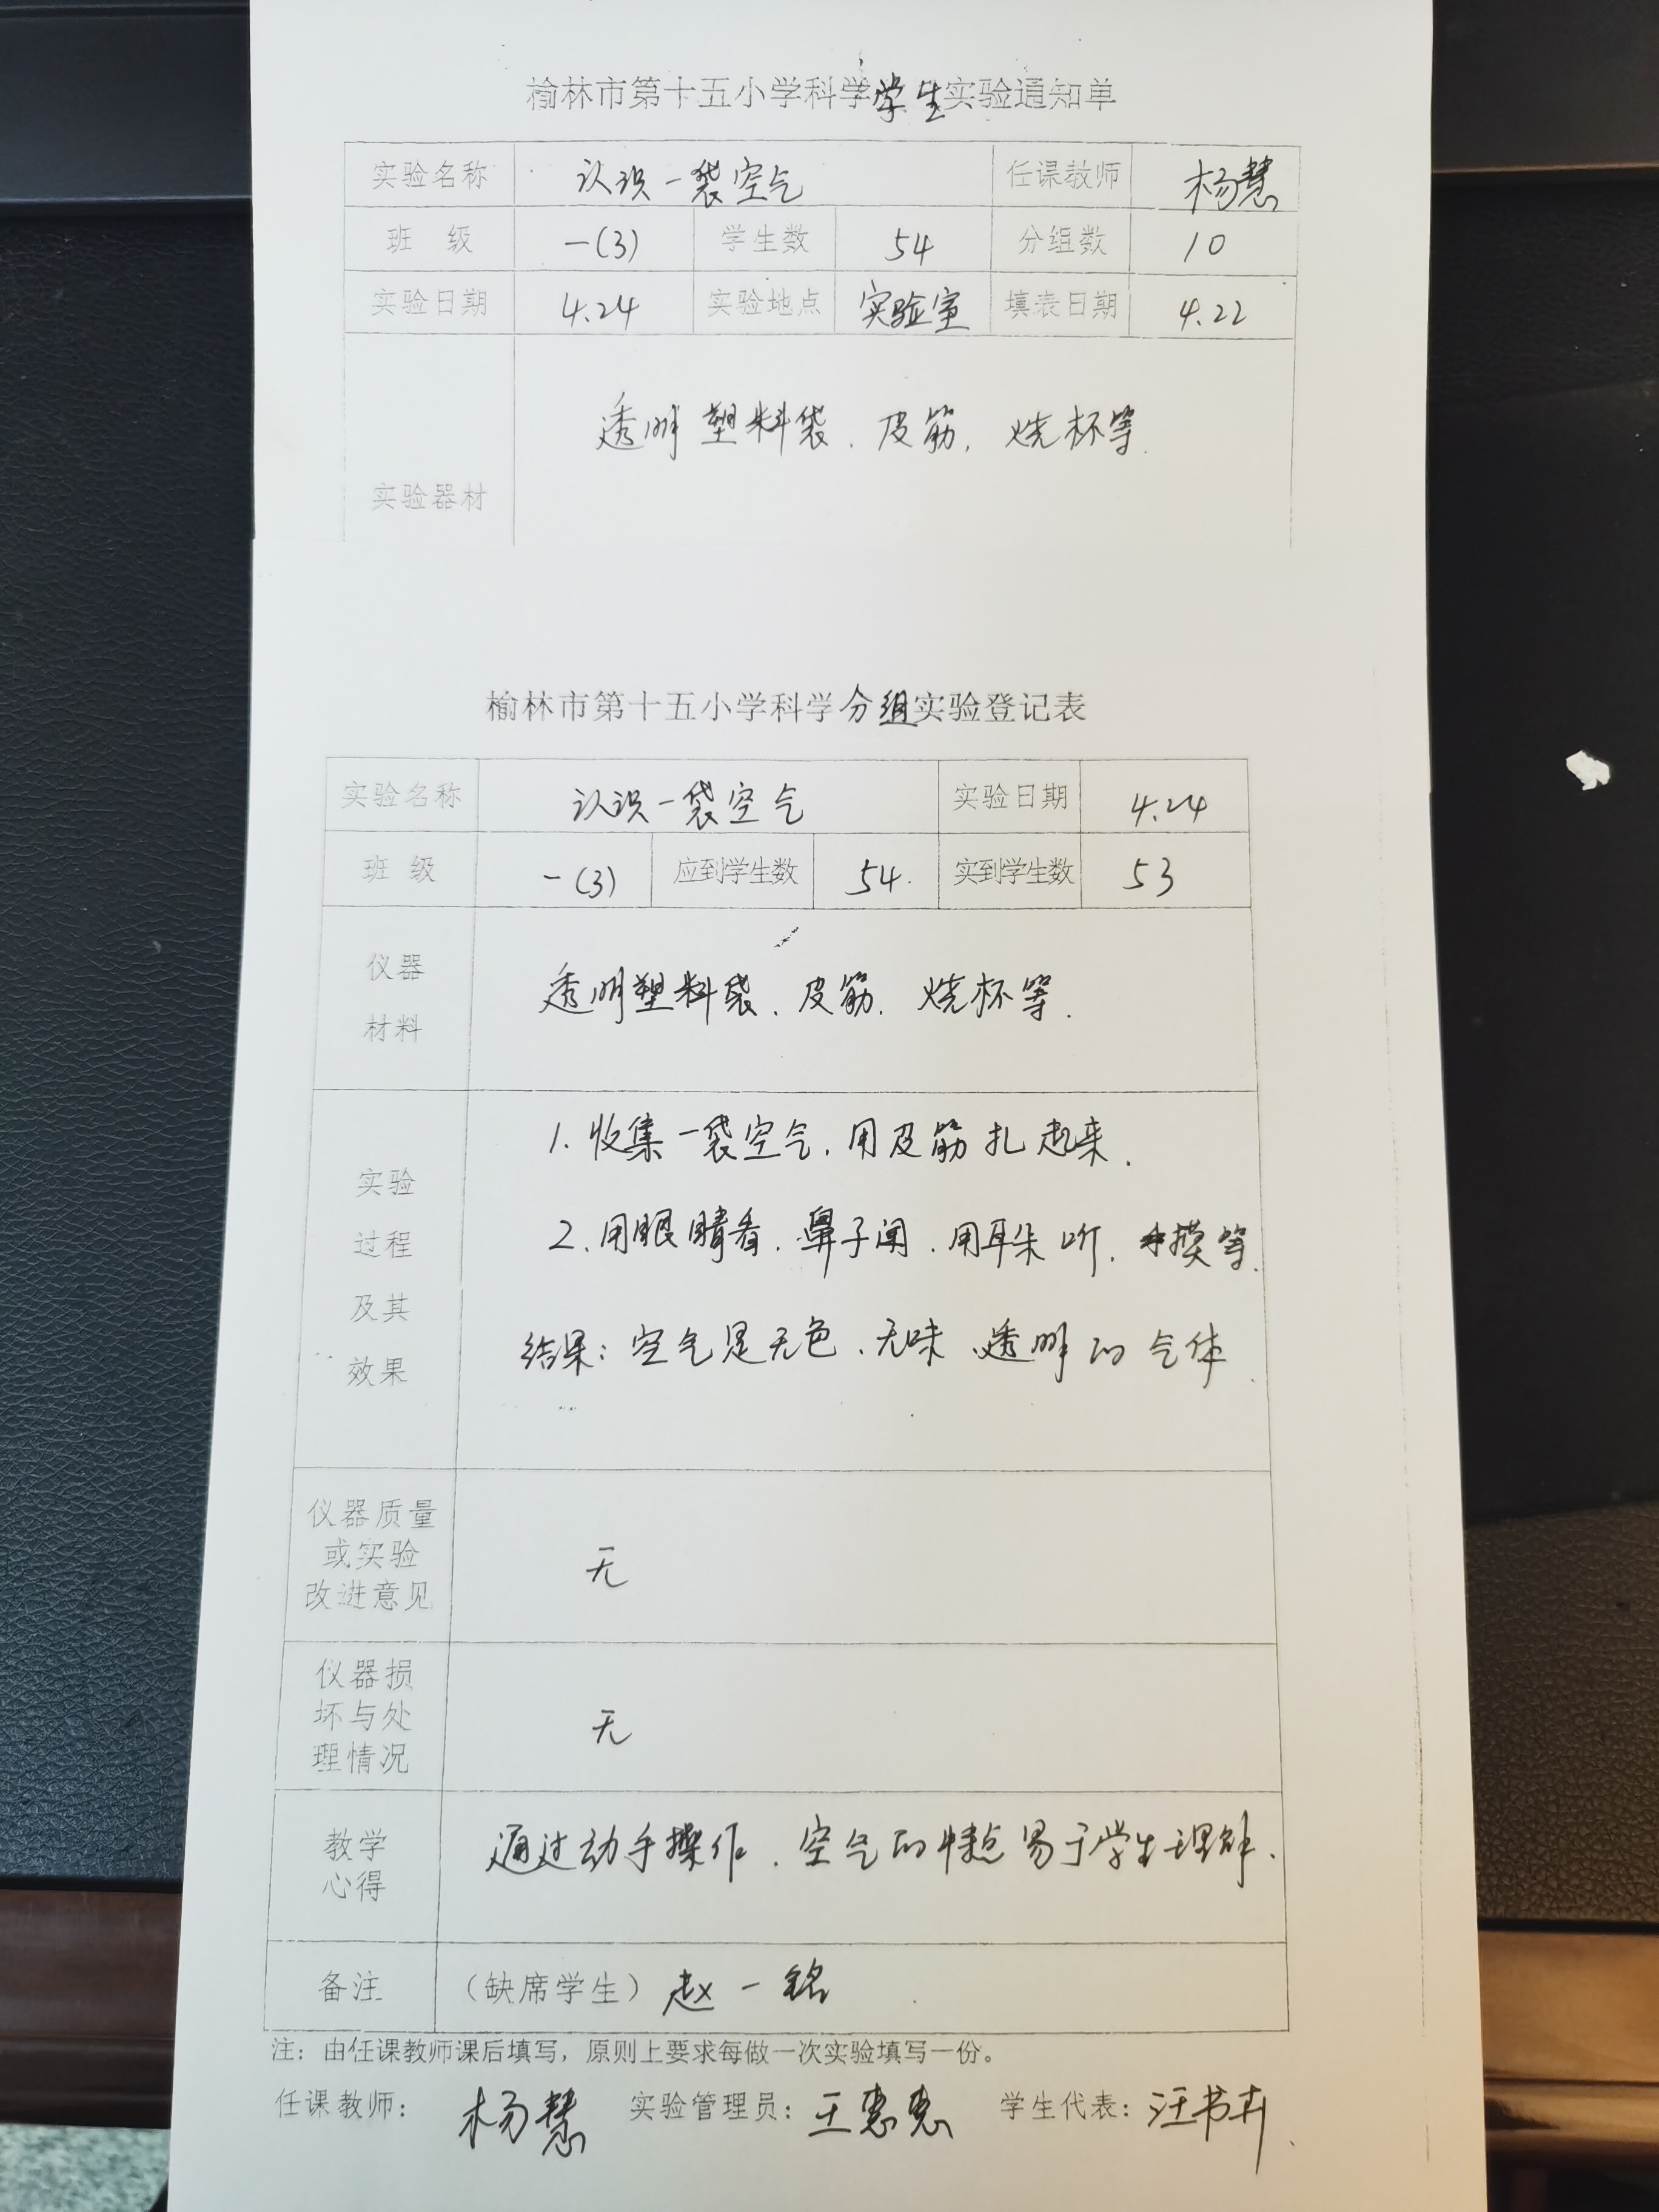 榆林市第十五小学科学学生实验通知单
实验名称 认识一袋空气 任课教师 杨慧
班 级 一(3) 学生数 54 分组数 10
实验日期 4.24 实验地点 实验室 填表日期 4.22
透明塑料袋、皮筋、烧杯等.
实验器材
榆林市第十五小学科学分组实验登记表
实验名称 认识一袋空气 实验日期 4.24
班 级 一(3) 应到学生数 54. 实到学生数 53
仪器
材料
透明塑料袋、皮筋、烧杯等.
实验
过程
及其
效果
1. 收集一袋空气,用皮筋扎起来.
2. 用眼睛看、鼻子闻、用耳朵听、手摸等.
结果:空气是无色、无味、透明的气体.
仪器质量
或实验
改进意见
无
仪器损
坏与处
理情况
无
教学
心得
通过动手操作、空气的特点易于学生理解.
备注 (缺席学生)赵一铭
注:由任课教师课后填写,原则上要求每做一次实验填写一份。
任课教师:杨慧 实验管理员:王惠惠 学生代表:汪书卉